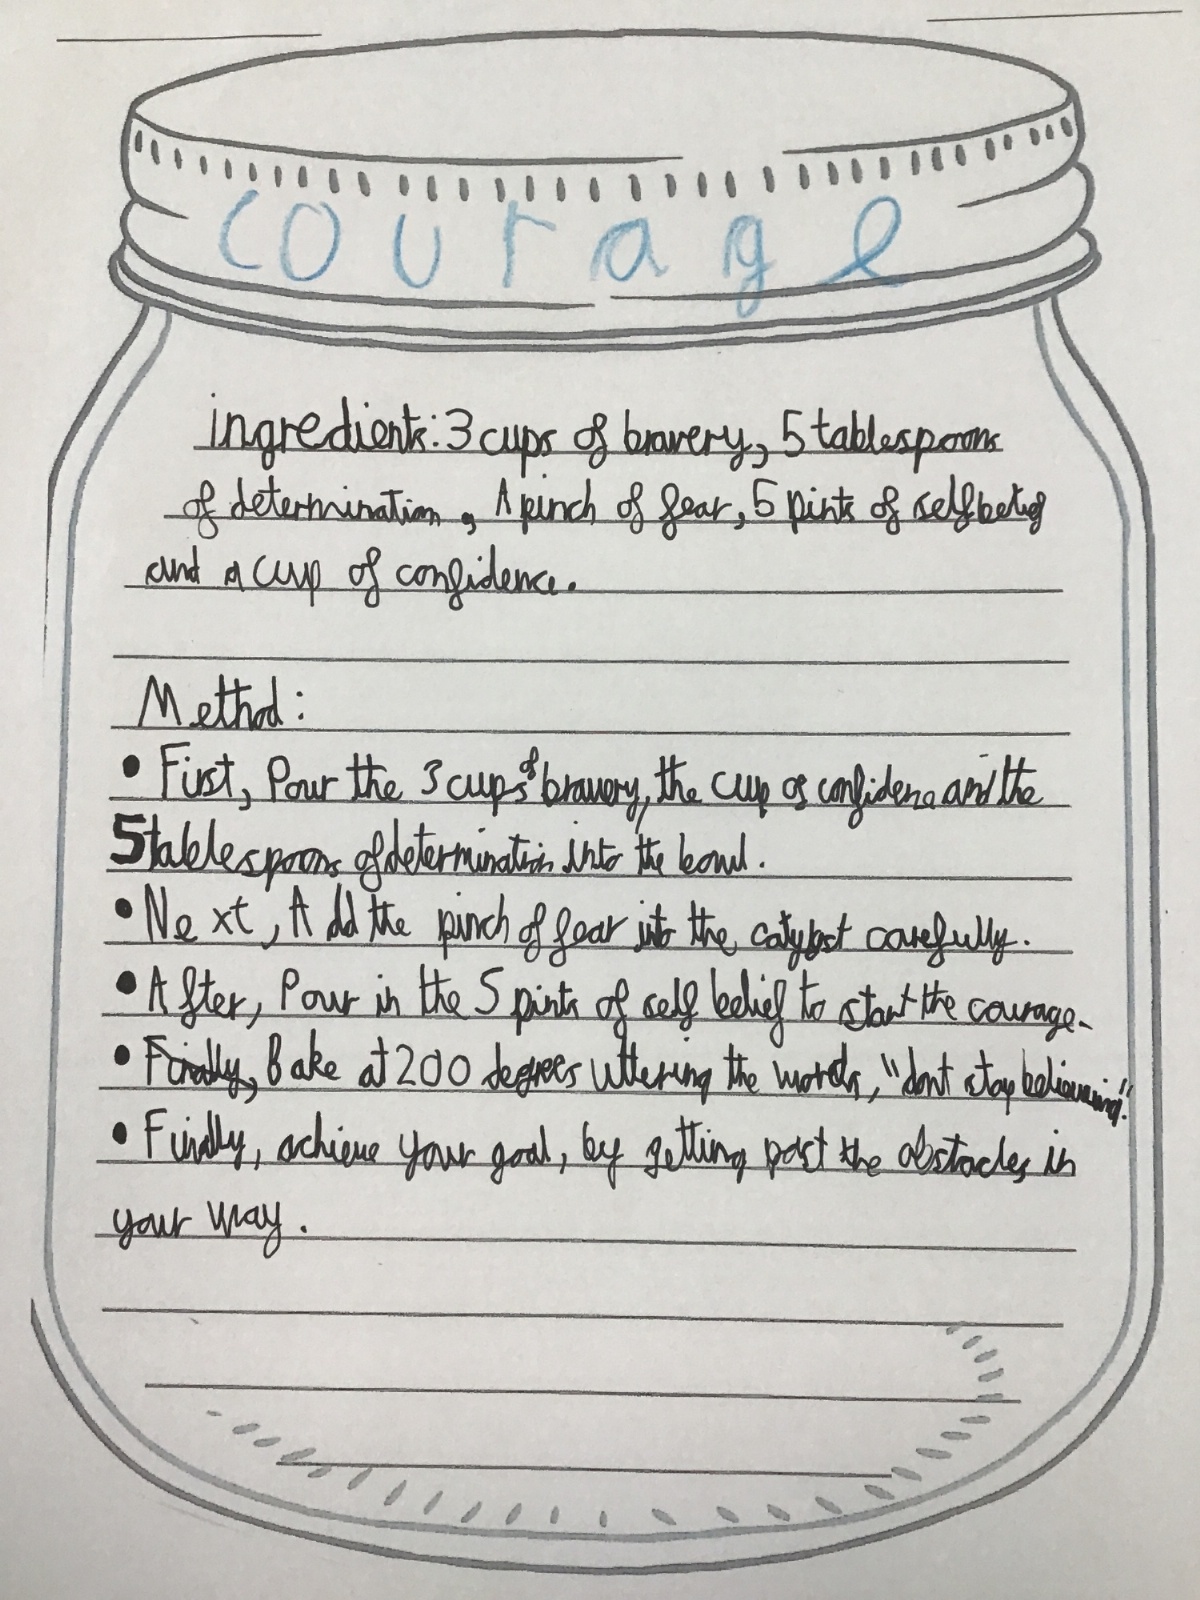 courage
ingredients: 3 cups of bravery, 5 tablespoons
of determination, A pinch of fear, 5 pints of self belief
and a cup of confidence.
Method:
• First, Pour the 3 cups of bravery, the cup of confidence and the
5 tablespoons of determination into the bowl.
• Next, Add the pinch of fear into the catylyst carefully.
• After, Pour in the 5 pints of self belief to start the courage.
• Finally, Bake at 200 degrees uttering the words, "dont stop believing."
• Finally, achieve your goal, by getting past the obstacles in
your way.